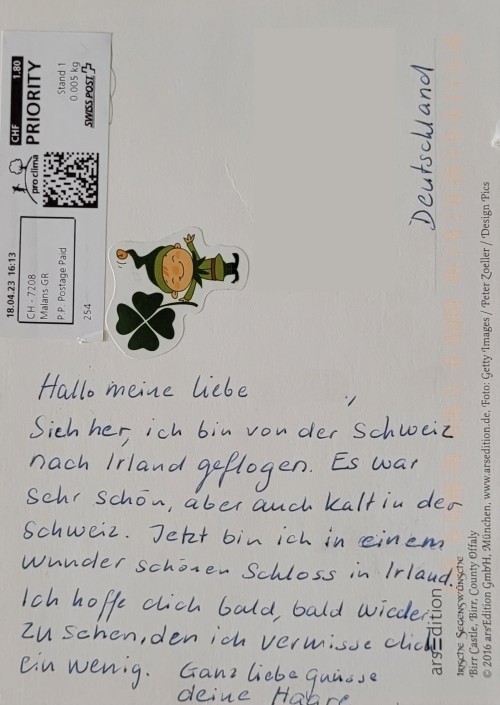 CHF 1.80
PRIORITY
Stand 1
0.005 kg
SWISS POST
pro clima
18.04.23 16:13
CH - 7208
Malans GR
P.P. Postage Paid
254
Deutschland
Hallo meine liebe
Sieh her, ich bin von der Schweiz
nach Irland geflogen. Es war
sehr schön, aber auch kalt in der
Schweiz. Jetzt bin ich in einem
wunder schönen Schloss in Irland.
Ich hoffe dich bald, bald wieder
zu sehen, den ich vermisse dich
ein wenig. Ganz liebe grüsse
deine Haare
arsEdition
IRISCHE SEGENSWÜNSCHE
Birr Castle, Birr, County Offaly
© 2016 arsEdition GmbH, München, www.arsedition.de, Foto: Getty Images / Peter Zoeller / Design Pics